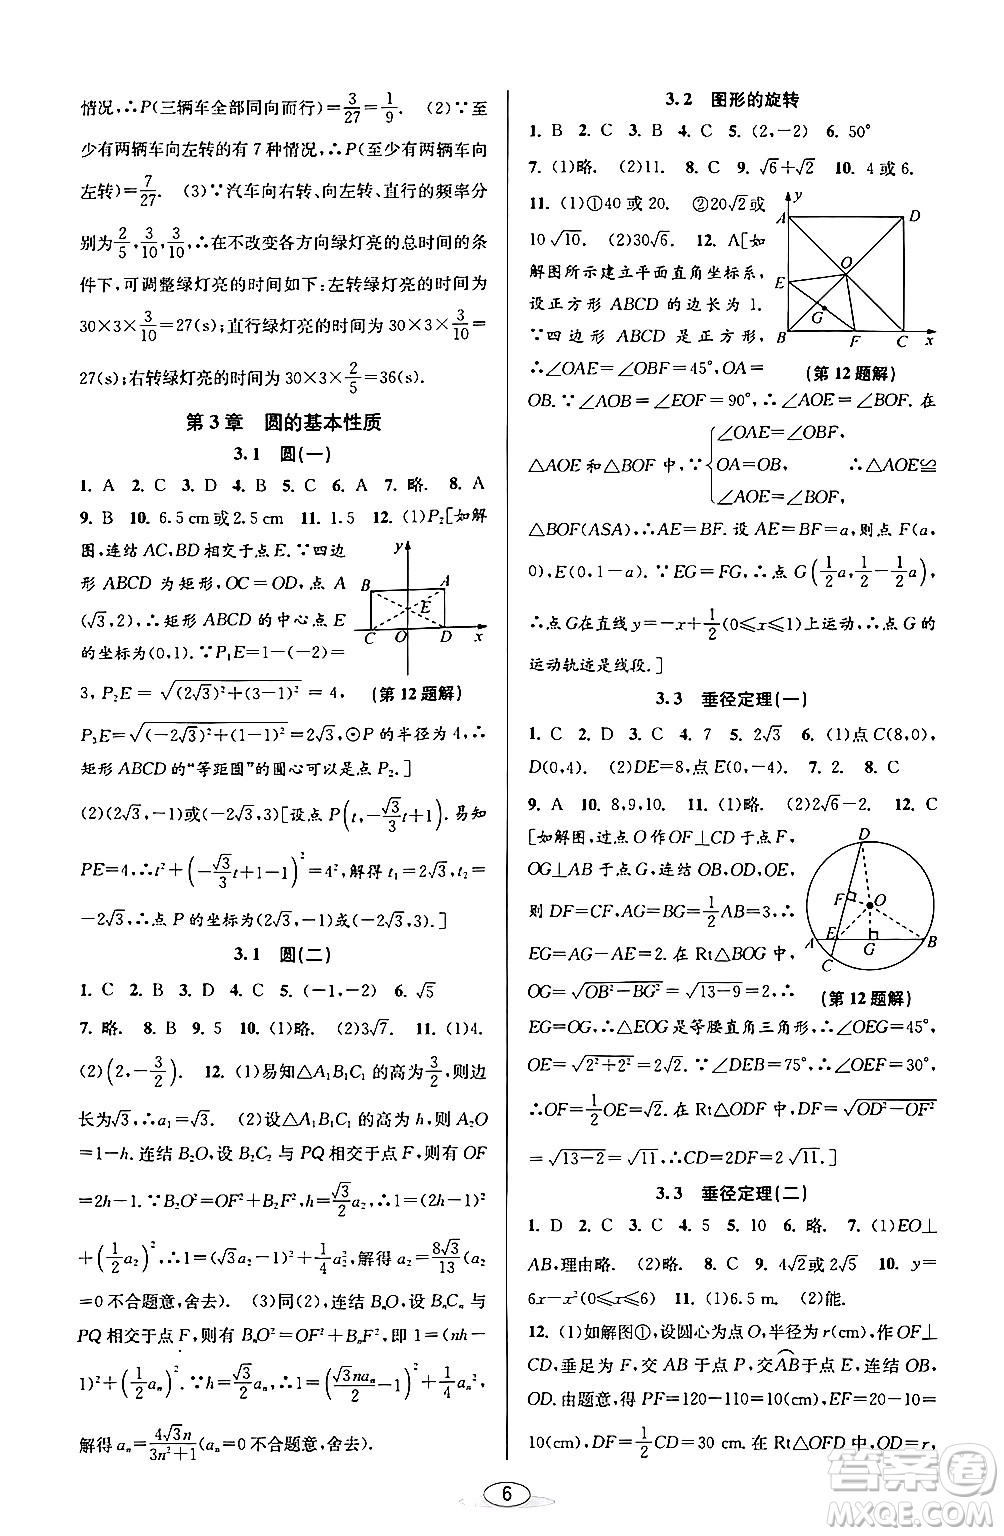 情况,∴P(三辆车全部同向而行)=3/27=1/9. (2)∵至
少有两辆车向左转的有7种情况,∴P(至少有两辆车向
左转)=7/27. (3)∵汽车向右转、向左转、直行的频率分
别为2/5,3/10,3/10,∴在不改变各方向绿灯亮的总时间的条
件下,可调整绿灯亮的时间如下:左转绿灯亮的时间为
30×3×3/10=27(s);直行绿灯亮的时间为30×3×3/10=
27(s);右转绿灯亮的时间为30×3×2/5=36(s).
第3章 圆的基本性质
3.1 圆(一)
1. A 2. C 3. D 4. B 5. C 6. A 7. 略. 8. A
9. B 10. 6.5 cm或2.5 cm 11. 1.5 12. (1)P₂[如解
图,连结AC,BD相交于点E.∵四边
形ABCD为矩形,OC=OD,点A
(√3,2),∴矩形ABCD的中心点E
的坐标为(0,1).∵P₁E=1-(-2)=
3,P₂E=√((2√3)²+(3-1)²)=4,
P₃E=√((-2√3)²+(1-1)²)=2√3,⊙P的半径为4,∴
矩形ABCD的“等距圆”的圆心可以是点P₂.]
y
B
A
E
C
O
D
x
(第12题解)
(2)(2√3,-1)或(-2√3,3)[设点P(t,-√3/3t+1),易知
PE=4,∴t²+(-√3/3t+1-1)²=4²,解得t₁=2√3,t₂=
-2√3,∴点P的坐标为(2√3,-1)或(-2√3,3).]
3.1 圆(二)
1. C 2. B 3. D 4. C 5. (-1,-2) 6. √5
7. 略. 8. B 9. 5 10. (1)略. (2)3√7. 11. (1)4.
(2)(2,-3/2). 12. (1)易知△A₁B₁C₁的高为3/2,则边
长为√3,∴a₁=√3. (2)设△A₁B₁C₁的高为h,则A₂O
=1-h.连结B₂O,设B₂C₂与PQ相交于点F,则有OF
=2h-1.∵B₂O²=OF²+B₂F²,h=√3/2a₂,∴1=(2h-1)²
+(1/2a₂)²,∴1=(√3a₂-1)²+1/4a₂²,解得a₂=8√3/13(a₂
=0不合题意,舍去). (3)同(2),连结BₙO,设BₙCₙ与
PQ相交于点F,则有BₙO²=OF²+BₙF²,即1=(nh-
1)²+(1/2aₙ)².∵h=√3/2aₙ,∴1=(√3naₙ/2-1)²+(1/2aₙ)²,
解得aₙ=4√3n/3n²+1(aₙ=0不合题意,舍去).
3.2 图形的旋转
1. B 2. C 3. B 4. C 5. (2,-2) 6. 50°
7. (1)略. (2)11. 8. C 9. √6+√2 10. 4或6.
11. (1)①40或20. ②20√2或
10√10. (2)30√6. 12. A[如
解图所示建立平面直角坐标系,
设正方形ABCD的边长为1.
∵四边形ABCD是正方形,
∴∠OAE=∠OBF=45°,OA=
y
A
D
O
E
G
B
F
C
x
(第12题解)
OB.∵∠AOB=∠EOF=90°,∴∠AOE=∠BOF.在
△AOE和△BOF中,∵{∠OAE=∠OBF, OA=OB, ∠AOE=∠BOF, ∴△AOE≌
△BOF(ASA),∴AE=BF.设AE=BF=a,则点F(a,
0),E(0,1-a).∵EG=FG,∴点G(1/2a,1/2-1/2a),
∴点G在直线y=-x+1/2(0≤x≤1)上运动,∴点G的
运动轨迹是线段.]
3.3 垂径定理(一)
1. C 2. D 3. C 4. 7 5. 2√3 6. (1)点C(8,0),
D(0,4). (2)DE=8,点E(0,-4). 7. 2. 8. C
9. A 10. 8,9,10. 11. (1)略. (2)2√6-2. 12. C
[如解图,过点O作OF⊥CD于点F,
OG⊥AB于点G,连结OB,OD,OE,
则DF=CF,AG=BG=1/2AB=3,∴
EG=AG-AE=2.在Rt△BOG中,
OG=√(OB²-BG²)=√(13-9)=2,∴
D
F
O
A
E
G
B
C
(第12题解)
EG=OG,∴△EOG是等腰直角三角形,∴∠OEG=45°,
OE=√(2²+2²)=2√2.∵∠DEB=75°,∴∠OEF=30°,
∴OF=1/2OE=√2.在Rt△ODF中,DF=√(OD²-OF²)
=√(13-2)=√11,∴CD=2DF=2√11.]
3.3 垂径定理(二)
1. D 2. C 3. C 4. 5 5. 10 6. 略. 7. (1)EO⊥
AB,理由略. (2)略. 8. C 9. 3√2或√2 10. y=
6x-x²(0≤x≤6) 11. (1)6.5 m. (2)能.
12. (1)如解图①,设圆心为点O,半径为r(cm),作OF⊥
CD,垂足为F,交AB于点P,交AB于点E,连结OB,
OD.由题意,得PF=120-110=10(cm),EF=20-10=
10(cm),DF=1/2CD=30 cm.在Rt△OFD中,OD=r,
6
答案圈
MXQE.COM